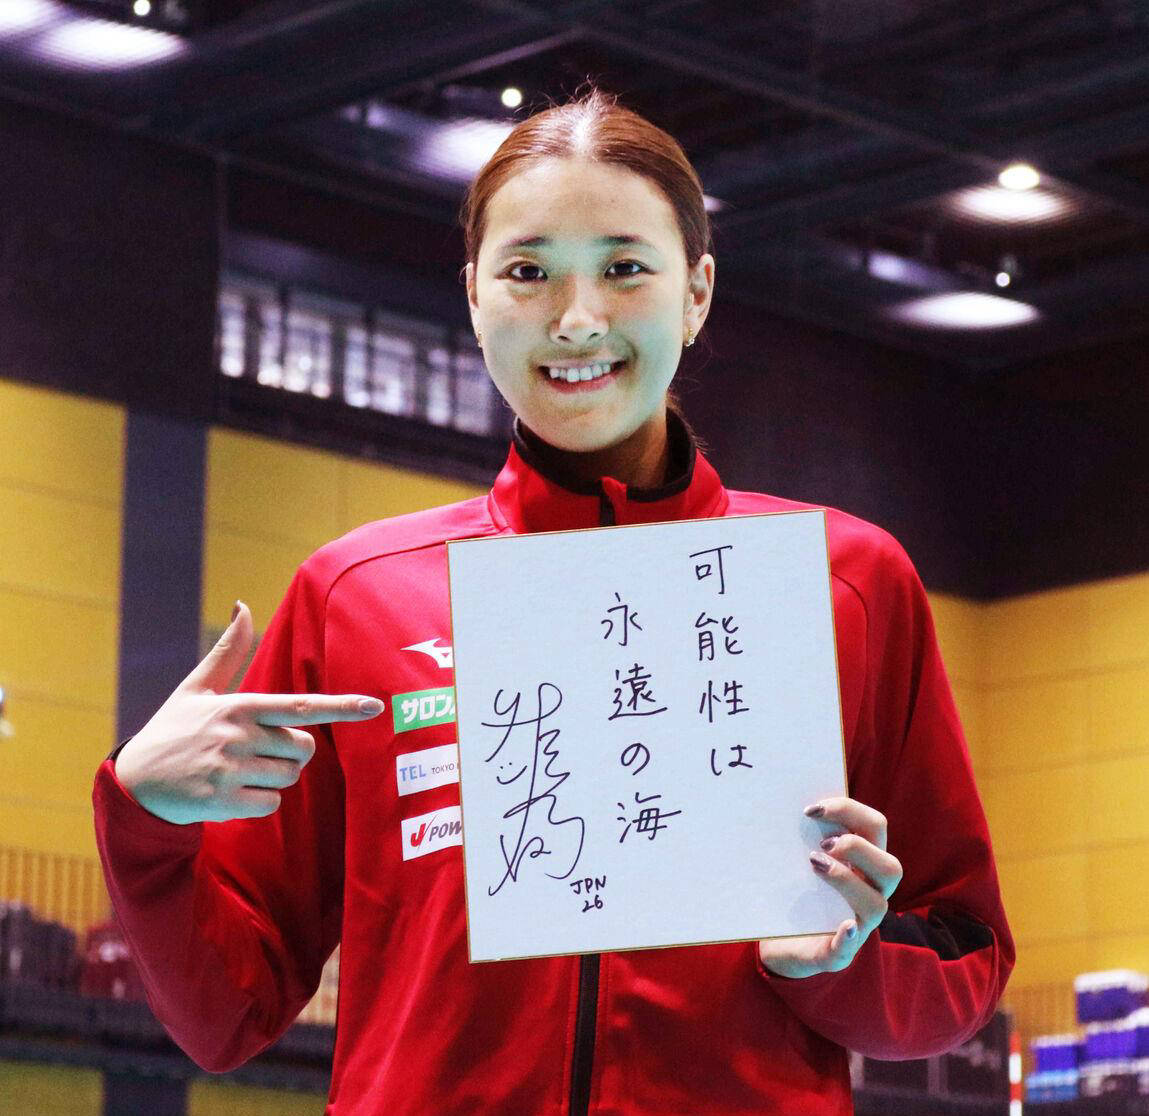 可能性は
永遠の海
JPN
26
サロン
TEL TOKYO
J POW